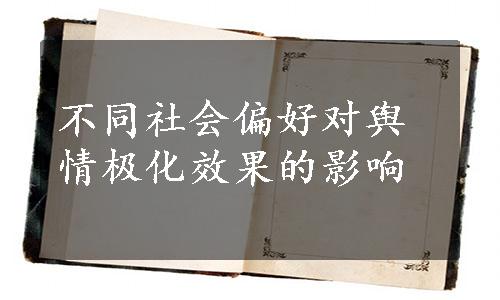 不同社会偏好对舆
情极化效果的影响